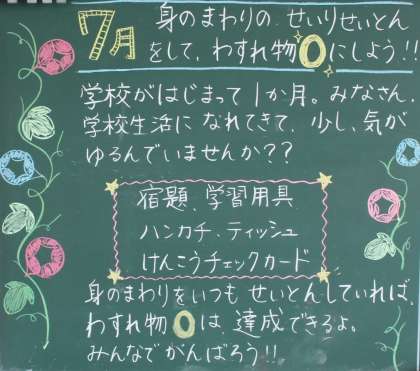 7月
身のまわりの せいりせいとん
をして、わすれ物0にしよう!!
学校がはじまって1か月。みなさん、
学校生活になれてきて、少し、気が
ゆるんでいませんか??
宿題、学習用具
ハンカチ、ティッシュ
けんこうチェックカード
身のまわりをいつも せいとんしていれば
わすれ物0は、達成できるよ。
みんなでがんばろう!!